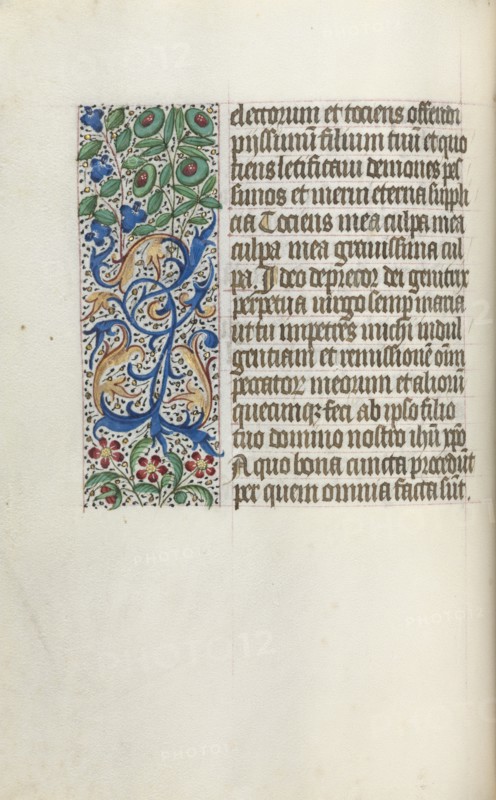 electorum et tociens offendi
pyssimū filium tuū et quo
ciens letificaui demones pes
simos et merui eterna suppli
cia Tociens mea culpa mea
culpa mea grauissima cul
pa. Ideo deprecor dei genitrix
perpetua uirgo semp maria
ut tu impetres michi indul
gentiam et remissionē oīm
peccator meorum et aliorū
quecumqꝫ feci ab ipso filio
tuo domino nostro ihū xp̄o
A quo bona cuncta procedūt
per quem omnia facta sūt.
PHOTO12